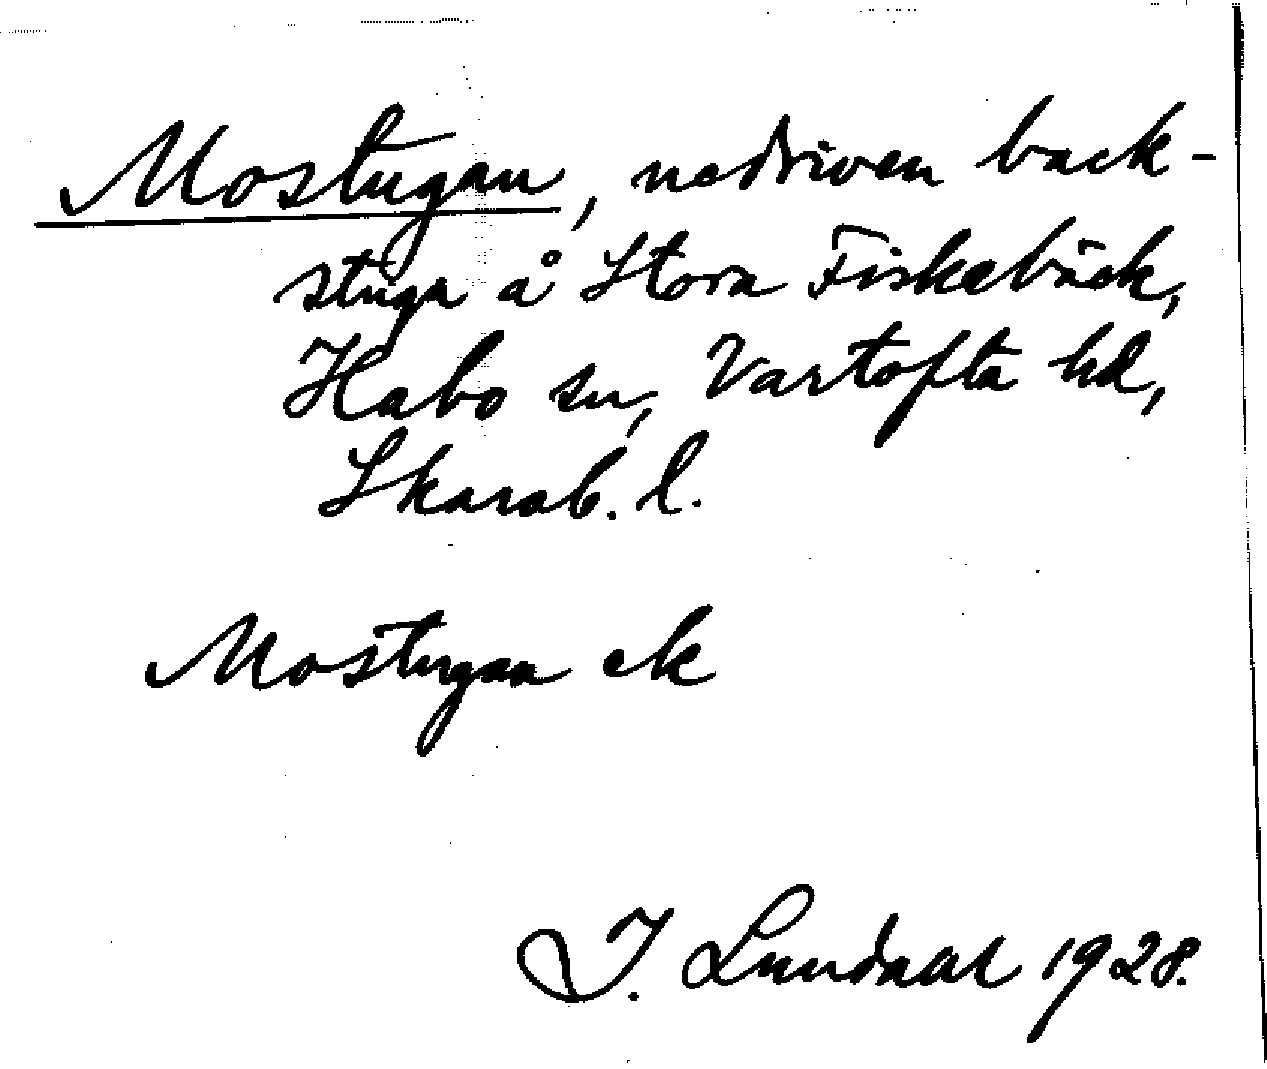 Mostugan, nedriven back-
stuga å Stora Fiskebäck,
Habo sn, Vartofta hd,
Skarab. l.
Mostugan ek
J. Lundahl 1928.